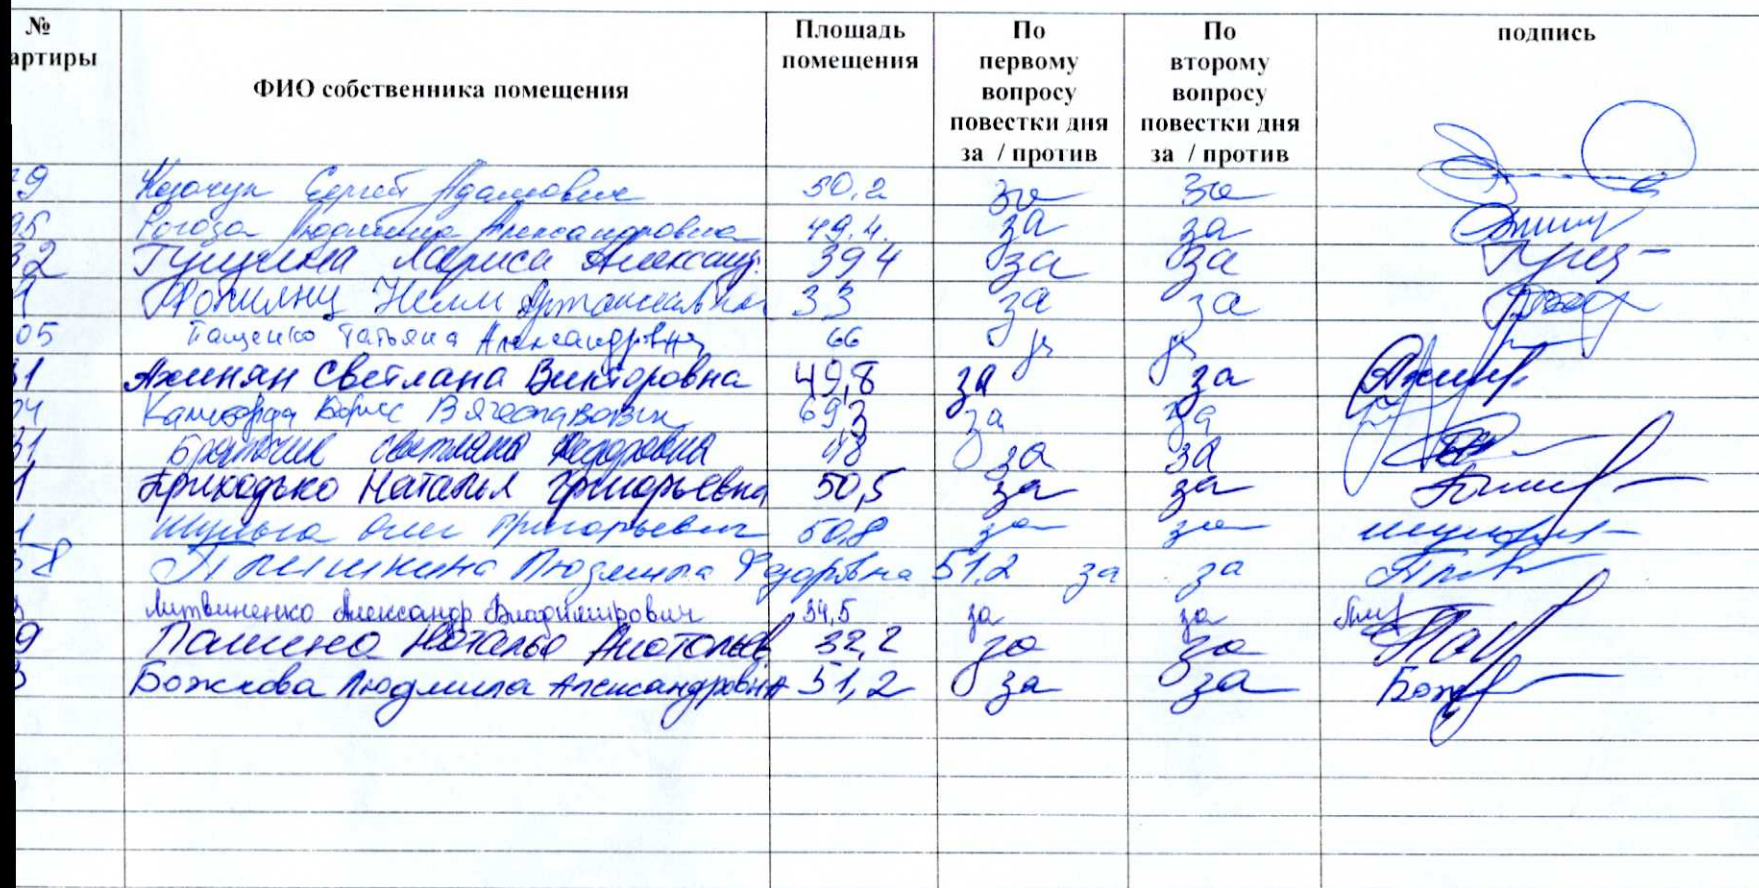 № артиры ФИО собственника помещения Площадь помещения По первому вопросу повестки дня за / против По второму вопросу повестки дня за / против подпись
9 Сергей Адамович 50,2 за за
95 Рогоза Людмила Александровна 49.4. за за
32 Лариса Александр. 39 4 за за
Нелли 33 за за
05 Пащенко Татьяна Александровна 66 за за
31 Ажинян Светлана Викторовна 49,8 за за
04 Борис Вячеславович 69,3 за за
31 Светлана Федоровна 48 за за
1 Приходько Наталья Григорьевна 50,5 за за
1 Шульга Олег Григорьевич 50,8 за за
58 Людмила Федоровна 51,2 за за
3 Литвиненко Александр Владимирович 34,5 за за
9 Пашено Наталья Анатольев 32,2 за за
3 Божкова Людмила Александровна 51,2 за за Бож